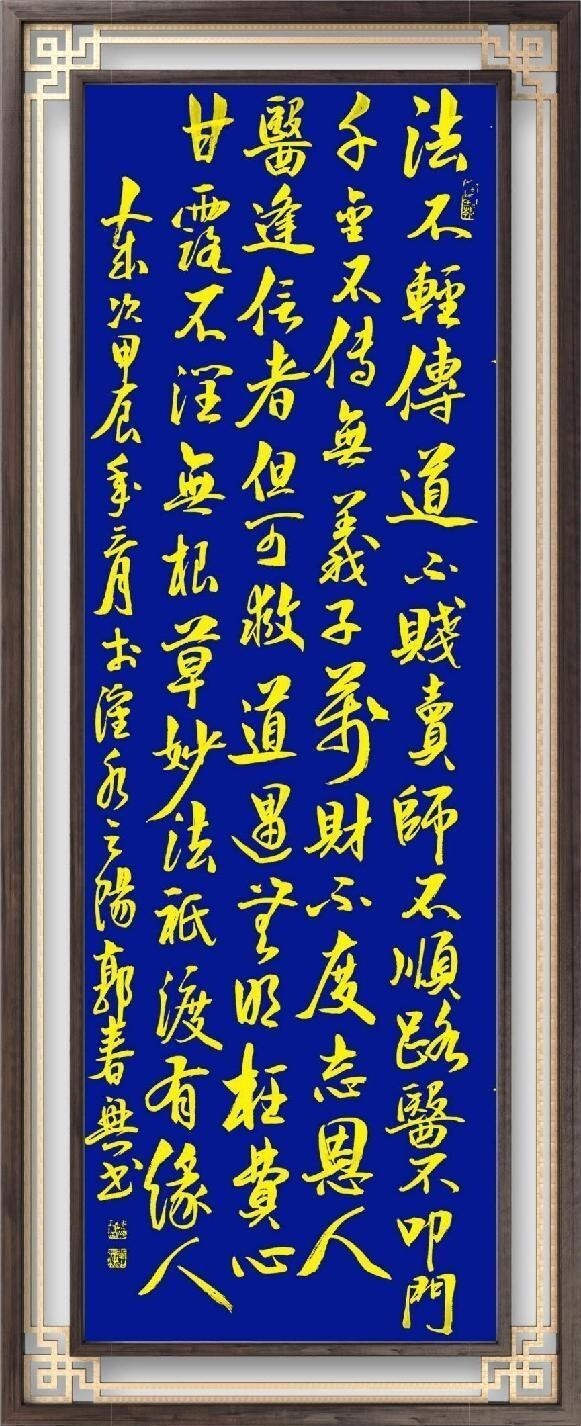 法不輕傳道不賤賣師不順路醫不叩門
千金不传無義子萬財不度忘恩人
醫逢信者但可救道遇無明枉費心
甘露不润無根草妙法祇渡有緣人
歲次甲辰年月於水之陽郭春興书